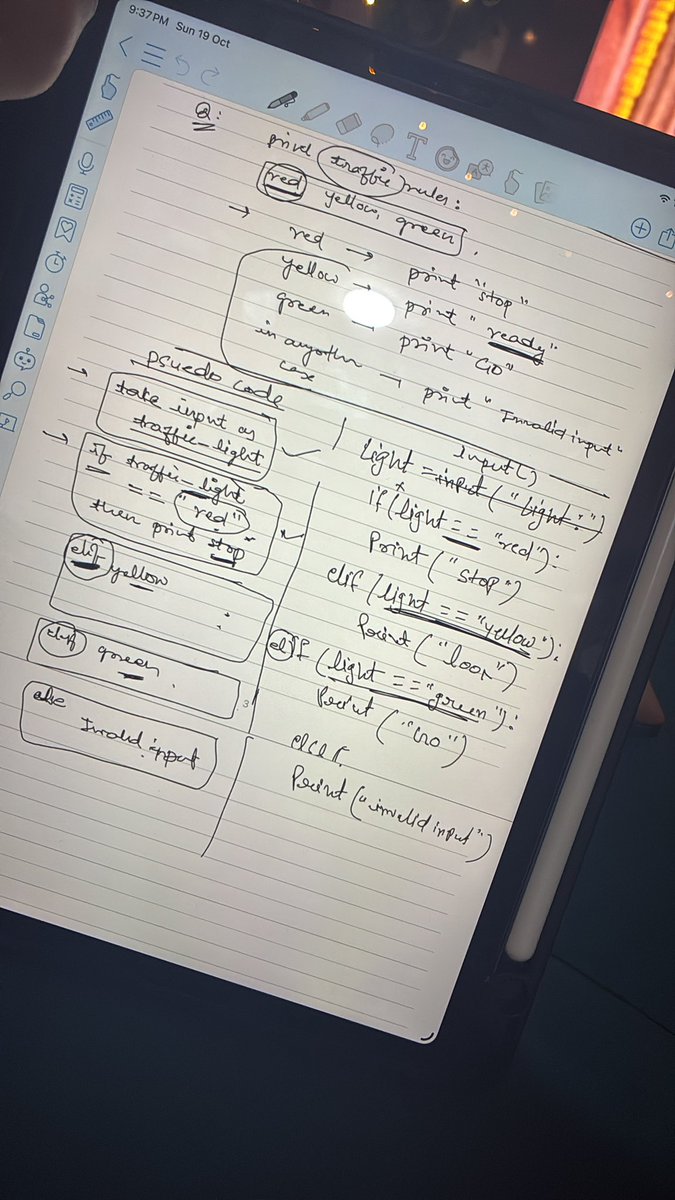 9:37 PM Sun 19 Oct
Q:
print traffic rules:
red yellow, green.
→ red → print "stop"
yellow → print "ready"
green → print "GO"
in anyother case → print "Invalid input"
Psuedo code
→ take input as
traffic-light
→ if traffic-light
== "red"
then print stop
elif yellow
elif green.
else
Invalid input
3
input()
light = input("light:")
if (light == "red"):
Print ("stop")
elif (light == "yellow"):
Print ("
elif (light == "green"):
Print ("Go")
else
Print ("invalid input")